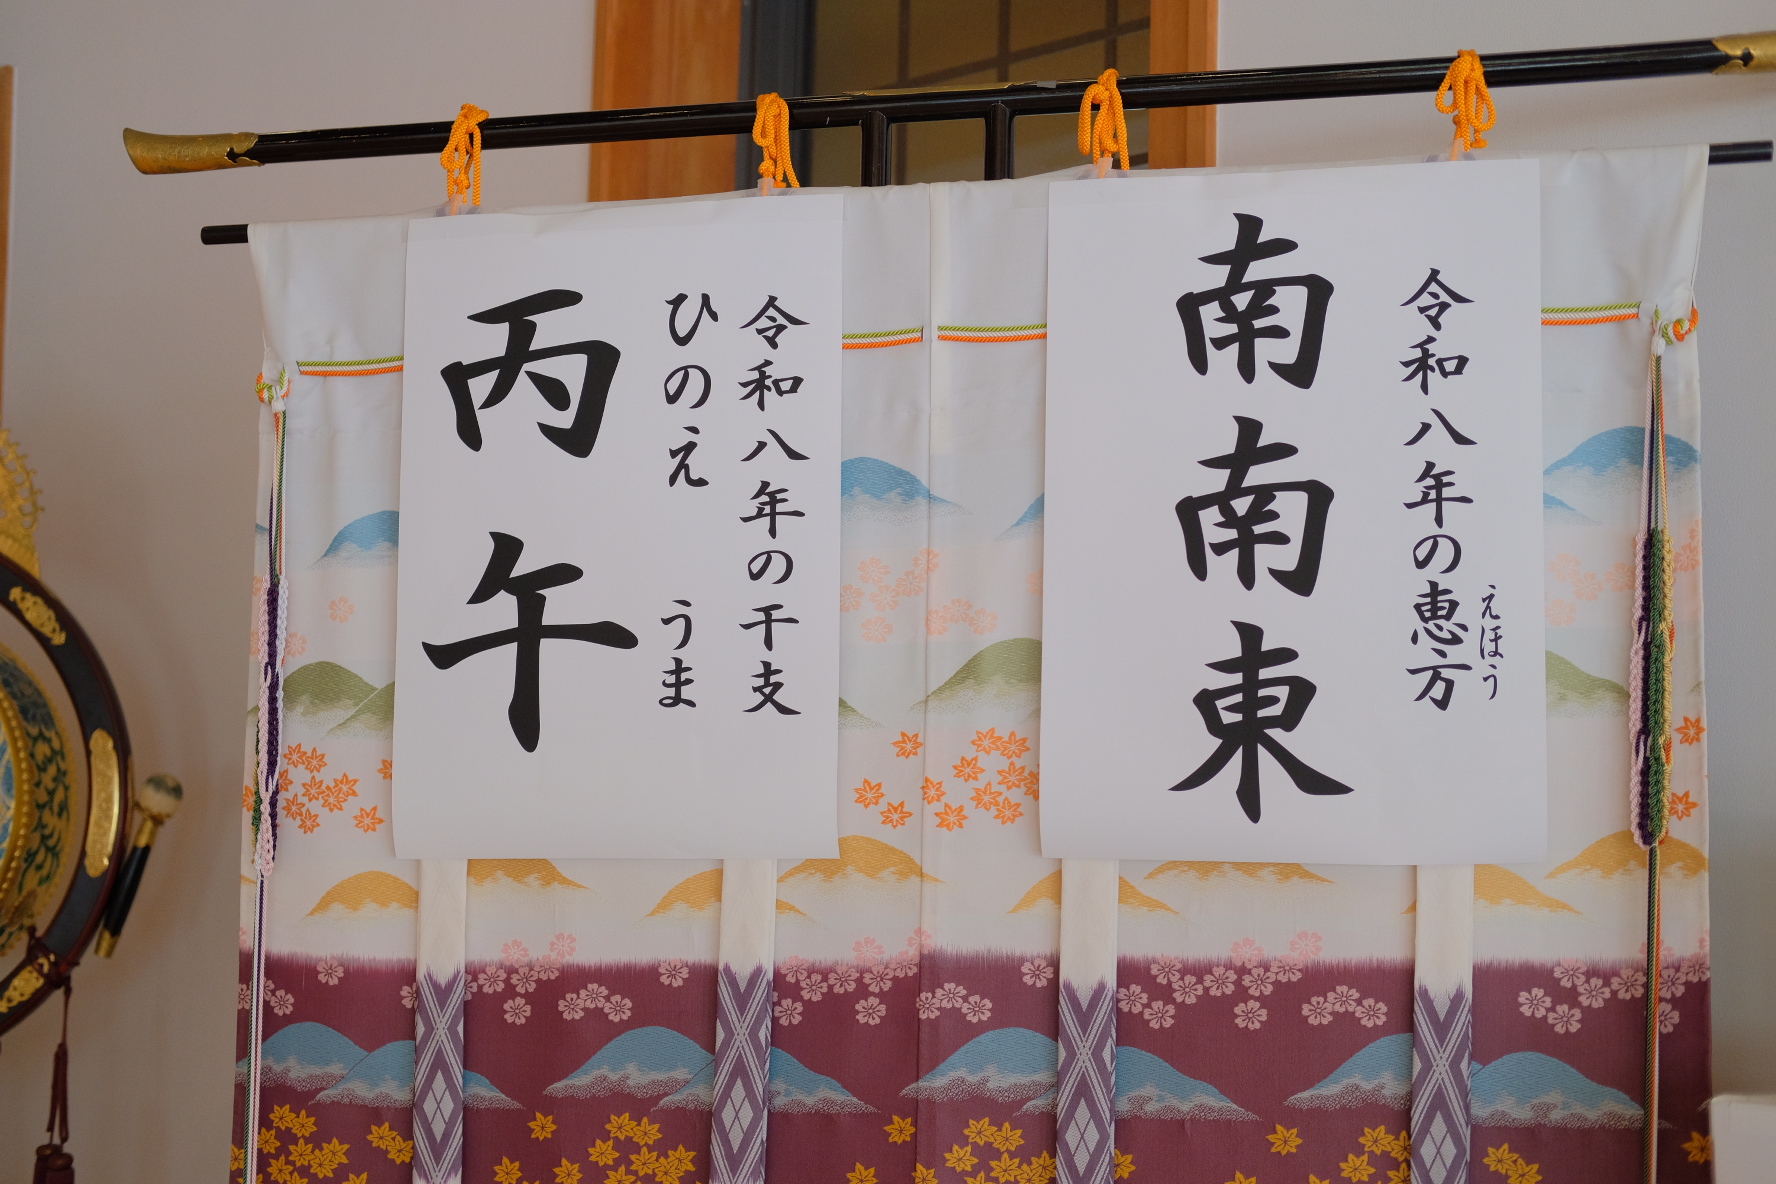 令和八年の恵方
えほう
南南東
令和八年の干支
ひのえ うま
丙午